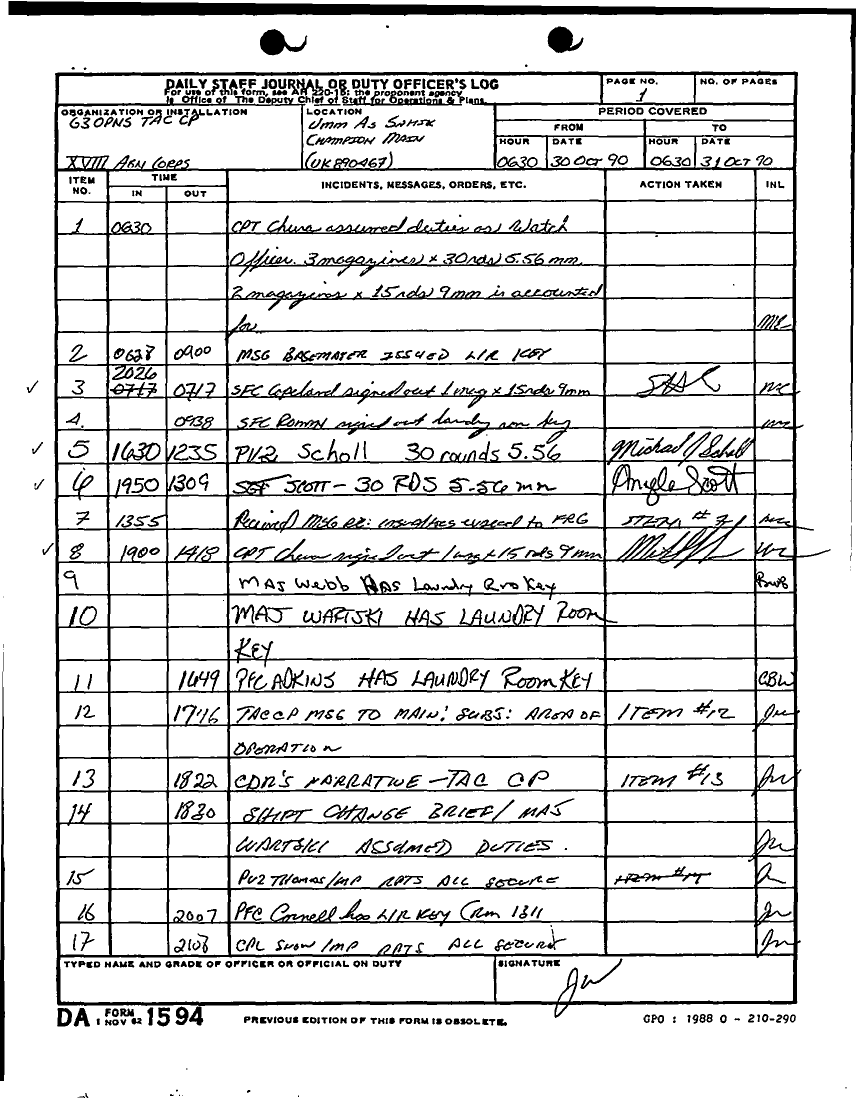 DAILY STAFF JOURNAL OR DUTY OFFICER'S LOG
For use of this form, see AR 220-15; the proponent agency
is Office of The Deputy Chief of Staff for Operations & Plans.
PAGE NO.
1
NO. OF PAGES
ORGANIZATION OR INSTALLATION
G3 OPNS TAC CP
XVIII ABN CORPS
LOCATION
CHAMPION MAIN
(UK890467)
PERIOD COVERED
FROM TO
HOUR DATE HOUR DATE
0630 30 OCT 90 0630 31 OCT 90
ITEM NO. TIME IN OUT INCIDENTS, MESSAGES, ORDERS, ETC. ACTION TAKEN INL
1 0630 CPT assumed duties as Watch
Officer. 3 magazines x 30 rds 5.56 mm.
2 magazines x 15 rds 9mm is accounted
for
2 0900 MSG ISSUED L/R KEY
2026
3 0717 0717 SFC Copeland signed out 1 mag x 15 rds 9mm
4. 0938 SFC signed out laundry key
5 1630 1235 PV2 Scholl 30 rounds 5.56 Michael J Scholl
6 1950 1309 SCOTT - 30 RDS 5.56 mm Scott
7 1355 Received MSG RE: to ITEM #
8 1900 1418 CPT signed out 1 mag x 15 rds 9mm
9 MAJ Webb HAS Laundry Key
10 MAJ WARTSKI HAS LAUNDRY ROOM
KEY
11 1649 PFC ADKINS HAS LAUNDRY ROOM KEY CBW
12 1746 TAC CP MSG TO MAIN: SUBJ: AREA OF ITEM #12 JW
OPERATION
13 1822 CDR'S NARRATIVE - TAC CP ITEM #13 JW
14 1830 SHIFT CHANGE BRIEF/ MAJ
WARTSKI ASSUMED DUTIES. JW
15 PV2 Thomas/MP RPTS ALL SECURE
16 2007 PFC Connell has L/R KEY (Rm 1311 JW
17 CPL Snow/MP RPTS ALL SECURE JW
TYPED NAME AND GRADE OF OFFICER OR OFFICIAL ON DUTY
SIGNATURE
JW
DA FORM 1 NOV 62 1594
PREVIOUS EDITION OF THIS FORM IS OBSOLETE.
GPO : 1988 O - 210-290